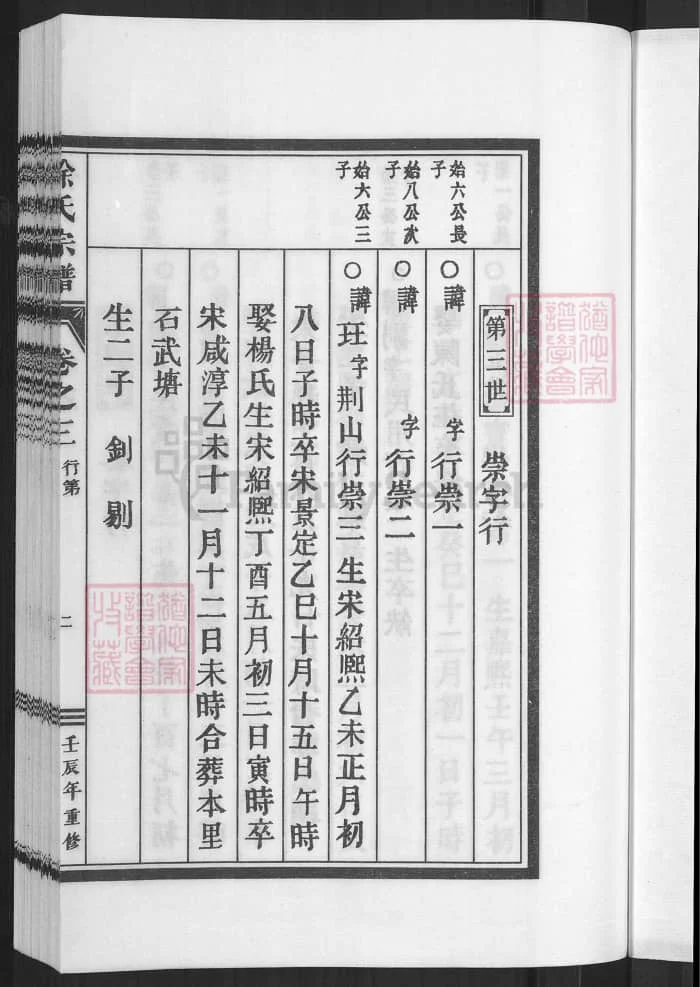 【第三世】 崇字行
始六公長子
○諱 字 行崇一
始八公次子
○諱 字 行崇二
始大公三子
○諱 班 字 荆山行崇三 生宋紹熙乙未正月初
八日子時卒宋景定乙巳十月十五日午時
娶楊氏生宋紹熙丁酉五月初三日寅時卒
宋咸淳乙未十一月十二日未時合葬本里
石武塘
生二子 釗 剔
徐氏宗譜 卷之三 行第 二 壬辰年重修
猶他家譜學會收藏
猶他家譜學會收藏
FamilySearch